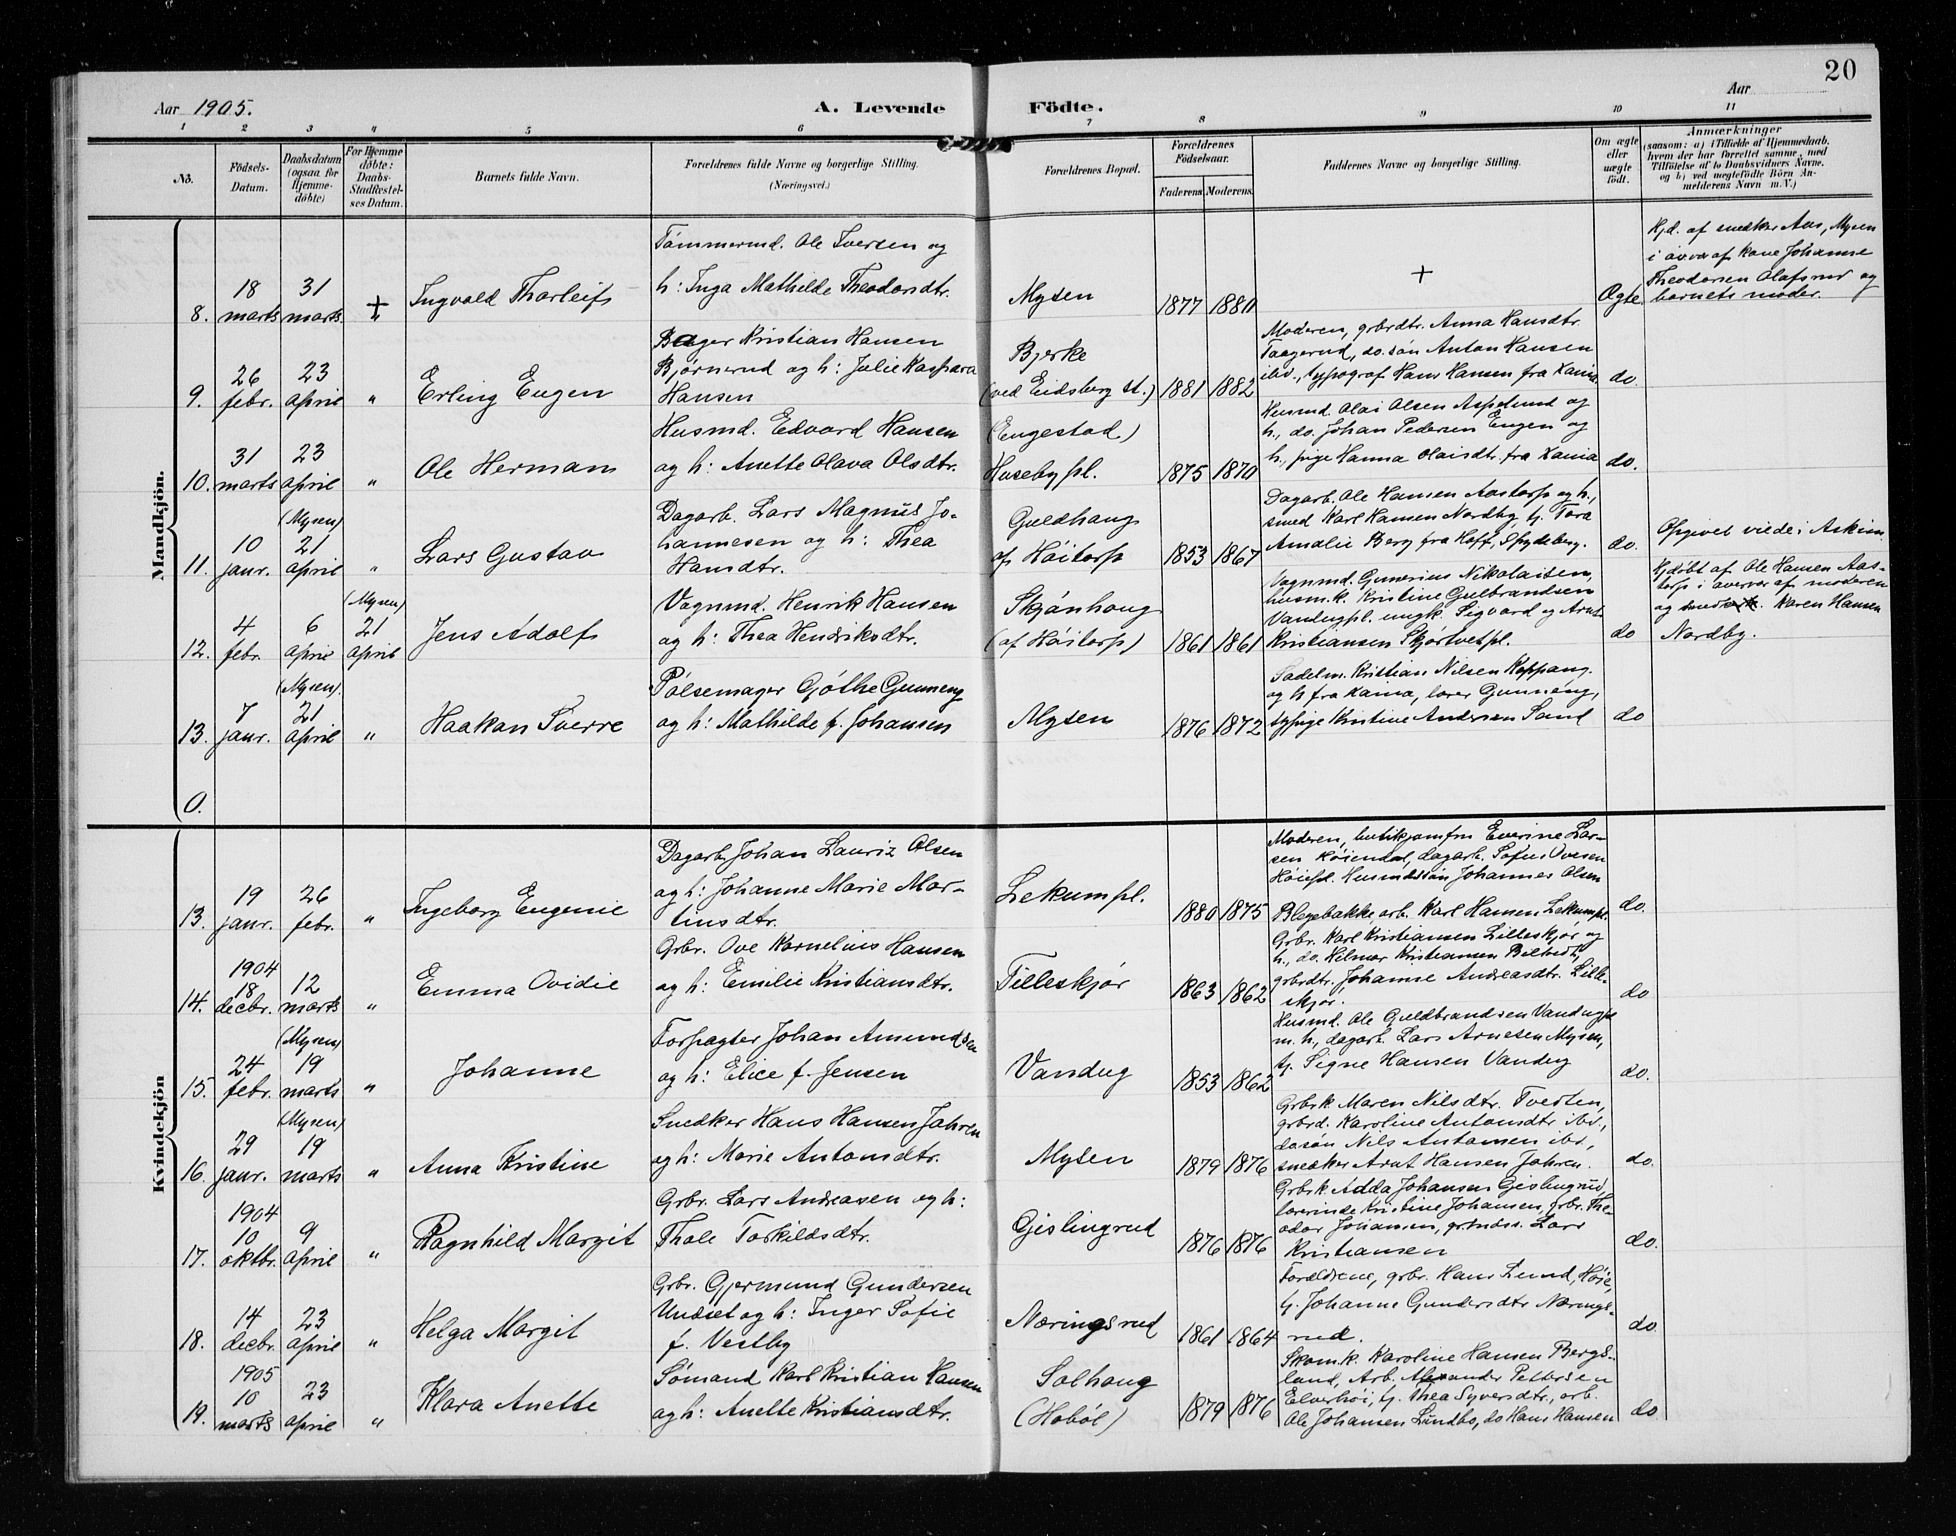 20
Aar 1905.
A. Levende Födte.
Aar
1 2 3 4 5 6 7 8 9 10 11
No.
Födsels-Datum.
Daabsdatum (ogsaa for Hjemmedöbte)
For Hjemmedöbte: Daabs-Stadfestelses Datum.
Barnets fulde Navn.
Forældrenes fulde Navne og borgerlige Stilling.
(Næringsvei.)
Forældrenes Bopæl.
Forældrenes Födselsaar.
Faderens. Moderens.
Faddernes Navne og borgerlige Stilling.
Om ægte eller uægte födt.
Anmærkninger
(saasom: a) i Tilfælde af Hjemmedaab, hvem der har forrettet samme, med Tilföielse af to Daabsvidners Navne. og b) ved uægtefödte Börn Anmelderens Navn m. V.)
Mandkjön.
8.
18 marts
31 marts
+ "
Ingvald Tharleif
Tømmermd. Ole Iversen og
h: Inga Mathilde Theodorsdtr.
Mysen
1877 1880
+
Ægte
Hjd. af snedker Aas, Mysen
i overv. af kone Johanne
Theodorsen Olafsrud og
barnets moder.
9.
26 febr.
23 april
"
Erling Eugen
Bager Kristian Hansen
Bjørnerud og h: Julie Kaspara
Hansen
Bjerke
(ved Eidsberg st.)
1881 1882
Moderen, grbrdtr. Anna Hansdtr.
Taagerud, do. søn Anton Hansen
ibd., typograf Hans Hansen fra Xania
do.
10.
31 marts
23 april
"
Ole Herman
Husmd. Edvard Hansen
og h: Anette Olava Olsdtr.
(Engestad)
Husebypl.
1875 1870
Husmd. Olai Olsen Aspelund og
h., do. Johan Pedersen Engen og
h., pige Hanna Olaisdtr. fra Xania
do.
11.
10 janr.
(Mysen)
21 april
"
Lars Gustav
Dagarb. Lars Magnus Johannesen og h: Thea
Hansdtr.
Guldhaug
af Høitorp
1853 1867
Dagarb. Ole Hansen Aastorp og h.,
smed Karl Hansen Nordby, tj. Tora
Amalie Berg fra Hoff, Spydeberg.
do.
Opgivet viede i Askim.
12.
4 febr.
6 april
(Mysen)
21 april
Jens Adolf
Vognmd. Henrik Hansen
og h: Thea Hendriksdtr.
Skjønhaug
(af Høitorp)
1861 1861
Vognmd. Gunerius Nikolaisen,
husm.k. Kristine Gulbrandsen
Vandugpl. ungk. Sigvard og Arnt
Kristiansen Skjørtvetpl.
do
Hjdøbt af Ole Hansen Aastorp i overvær af moderen
og Karen Hansen
Nordby.
13.
7 janr.
(Mysen).
21 april
"
Haakon Sverre
Pølsemager Gøthe Gunneng
og h: Mathilde f. Johansen
Mysen
1876 1872
Sadelm. Kristian Nilsen Koppang.
og h fra Xania, lærer Gunneng,
sypige Kristine Andersen Sand
do
0.
Kvindekjön
13.
19 janr.
26 febr.
"
Ingeborg Eugenie
Dagarb. Johan Lauriz Olsen
og h: Johanne Marie Martinsdtr.
Lekumpl.
1880 1875
Moderen, butikjomfru Everine Larsen Køiendal, dagarb. Sofus Ovesen
Høiepl. Husmdssøn Johannes Olsen
Blegebakke, arb. Karl Hansen Lekumpl.
do.
14.
1904
18 decbr.
12 marts
"
Emma Ovidie
Grbr. Ove Kornelius Hansen
og h: Emilie Kristiansdtr.
Lilleskjør
1863 1862
Grbr. Karl Kristiansen Lilleskjør og
h., do. Hilmar Kristiansen Biltvedt,
grbrdtr. Johanne Andreasdtr. Lilleskjør.
do
15.
24 febr.
(Mysen)
19 marts
"
Johanne
Forpagter Johan Amundsen
og h: Elice f. Jensen
Vandug
1853 1862
Husmd. Ole Guldbrandsen Vandugpl.
m. h., dagarb. Lars Arnesen Mysen,
tj. Signe Hansen Vandug
do.
16.
29 janr.
(Mysen)
19 marts
"
Anna Kristine
Snedker Hans Hansen Jahren
og h: Marie Antonsdtr.
Mysen
1879 1876
Grbrk. Maren Nilsdtr. Tveten,
grbrd. Karoline Antonsdtr ibd.,
do søn Nils Antonsen ibd.,
snedker Arnt Hansen Jahren.
do.
17.
1904
10 oktbr.
9 april
"
Ragnhild Margit
Grbr. Lars Andreasen og h:
Thale Torkildsdtr.
Gislingrud
1876 1876
Grbrk. Adda Johansen Gislingrud,
lærerinde Kristine Johansen, grbr. Theodor Johansen, grbrdss. Lars
Kristiansen
do.
18.
14 decbr.
23 april
"
Helga Margit
Grbr. Gjermund Gundersen
Undset og h: Inger Sofie
f. Vestby
Næringsrud
1861 1864
Forældrene, grbr. Hans Lund, Høie,
tj. Johanne Gundersdtr Næringsrud.
do
19.
1905
10 marts
23 april
"
Klara Anette
Sømand Karl Kristian Hansen
og h: Anette Kristiansdtr.
Solhaug
(Hobøl)
1879 1876
Skom.k. Karoline Hansen Bergsland, Arb. Alexander Pettersen
Elverhøi, tj. Thea Syversdtr., arb.
Ole Johansen Lundbo, do Hans Hansen
do